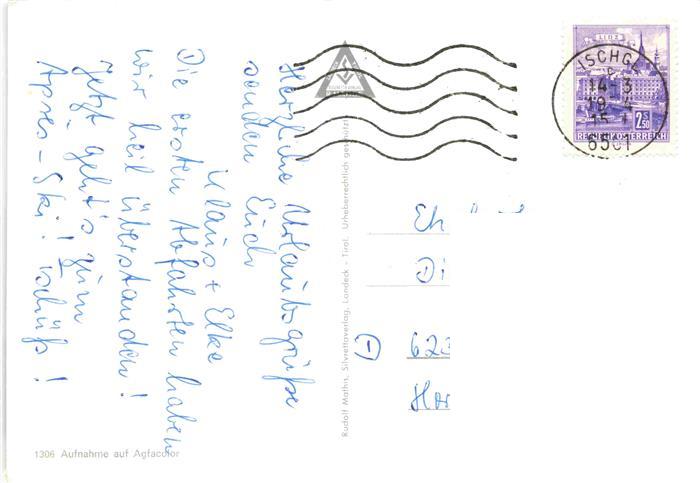 Herzliche Urlaubsgrüße
senden Euch
Klaus + Elke
Die ersten Abfahrten haben
wir heil überstanden!
Jetzt geht's zum
Apres-Ski! Tschüß!
LINZ
2.50
REPUBLIK ÖSTERREICH
ISCHGL
14-3
19
15
6561
Eh
Di
623
Hor
Rudolf Mathis, Silvrettaverlag, Landeck - Tirol. Urheberrechtlich geschützt!
1306 Aufnahme auf Agfacolor